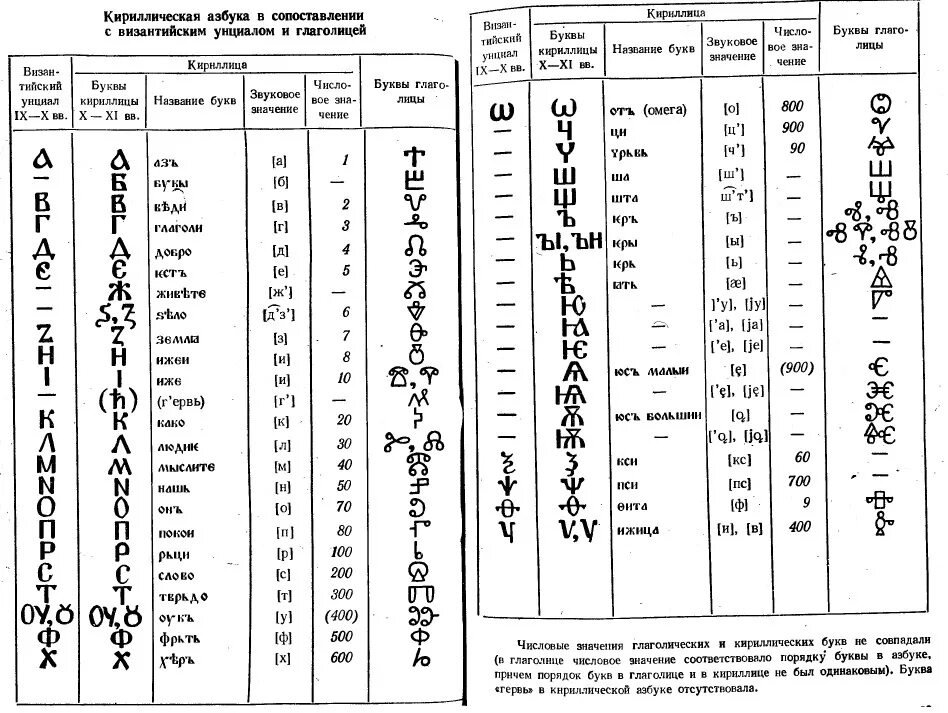 Кириллическая азбука в сопоставлении
с византийским унциалом и глаголицей
Визан-
тийский
унциал
IX—X вв.
Кириллица
Буквы
кириллицы
X—XI вв.
Название букв
Звуковое
значение
Число-
вое зна-
чение
Буквы глаго-
лицы
А А азъ [а] 1 Ⰰ
— Б букы [б] — Ⰱ
В В вѣди [в] 2 Ⰲ
Г Г глаголи [г] 3 Ⰳ
Д Д добро [д] 4 Ⰴ
Є Є ѥстъ [е] 5 Ⰵ
— Ж живѣте [ж'] — Ⰶ
— Ѕ, Ꙁ ѕѣло [д͡'з'] 6 Ⰷ
Ζ Ꙁ землꙗ [з] 7 Ⰸ
Н Н ижеи [и] 8 Ⰹ
І І иже [и] 10 Ⰺ, Ⰻ
— (Ћ) (г'ервь) [г'] — Ⰼ
К К како [к] 20 Ⰽ
Л Л людиѥ [л] 30 Ⰾ
М М мыслите [м] 40 Ⰿ
N N нашь [н] 50 Ⱀ
О О онъ [о] 70 Ⱁ
П П покои [п] 80 Ⱂ
Р Р рьци [р] 100 Ⱃ
С С слово [с] 200 Ⱄ
Т Т тврьдо [т] 300 Ⱅ
ОУ, Ꙋ ОУ, Ꙋ оукъ [у] (400) Ⱆ
Ф Ф фрьтъ [ф] 500 Ⱇ
Х Х хѣръ [х] 600 Ⱈ
Византийский
унциал
IX—X вв.
Кириллица
Буквы
кириллицы
X—XI вв.
Название букв
Звуковое
значение
Число-
вое зна-
чение
Буквы глаго-
лицы
Ѡ Ѡ отъ (омега) [о] 800 Ⱉ
— Ц ци [ц'] 900 Ⱌ
— Ч чрьвь [ч'] 90 Ⱍ
— Ш ша [ш'] — Ⱎ
— Щ шта ш͡'т'] — Ⱋ
— Ъ ѥръ [ъ] —
— ЪІ, ЪН ѥры [ы] —
— Ь ѥрь [ь] —
— Ѣ ꙗть [æ] — Ⱑ
— Ю — ['у], [jу] — Ⱓ
— Ꙗ — ['а], [jа] — —
— Ѥ — ['е], [jе] — —
— Ѧ юсъ малыи [ę] (900) Ⱔ
— Ѩ — ['ę], [ję] — Ⱗ
— Ѫ юсъ большии [ǫ] — Ⱘ
— Ѭ — ['ǫ], [jǫ] — Ⱙ
Ѯ Ѯ кси [кс] 60 —
Ѱ Ѱ пси [пс] 700 —
Ѳ Ѳ ѳита [ф] 9 Ⱚ
Ч Ѵ, Ѵ ижица [и], [в] 400 Ⱛ
Числовые значения глаголических и кириллических букв не совпадали
(в глаголице числовое значение соответствовало порядку буквы в азбуке,
причем порядок букв в глаголице и в кириллице не был одинаковым). Буква
«гервь» в кириллической азбуке отсутствовала.